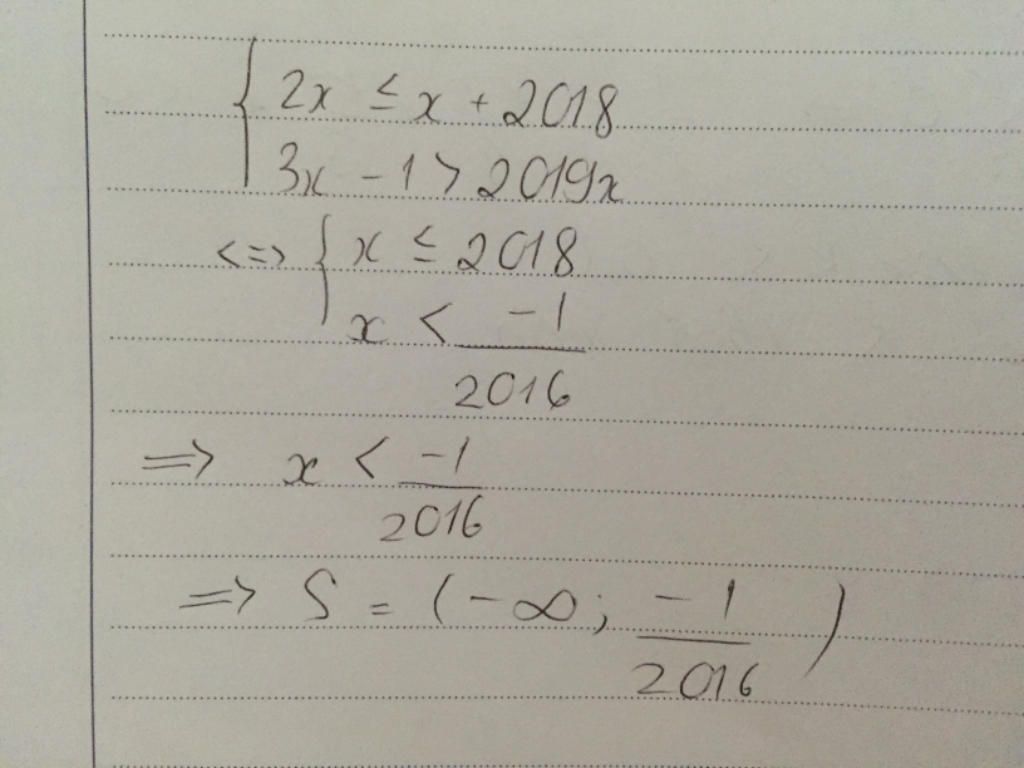 { 2x ≤ x + 2018
3x - 1 > 2019x
<=> { x ≤ 2018
x < -1
2016
=> x < -1
2016
=> S = (-∞; -1 )
2016